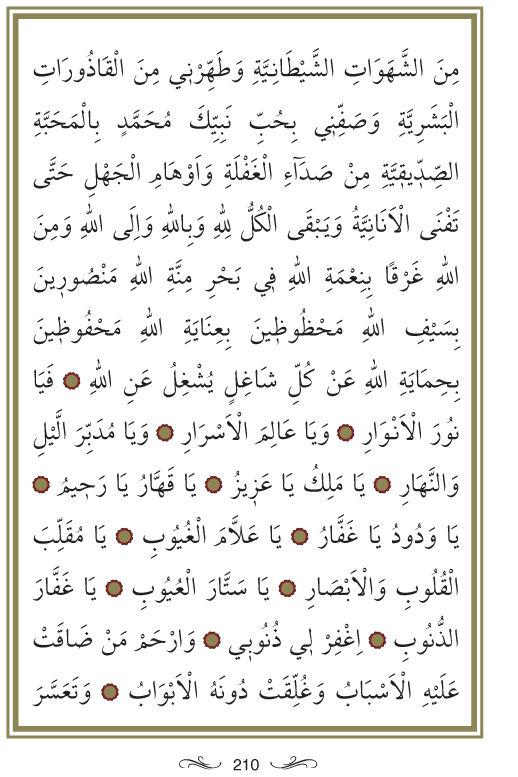 مِنَ الشَّهَوَاتِ الشَّيْطَانِيَّةِ وَطَهِّرْنِي مِنَ الْقَاذُورَاتِ
الْبَشَرِيَّةِ وَصَفِّنِي بِحُبِّ نَبِيِّكَ مُحَمَّدٍ بِالْمَحَبَّةِ
الصِّدِّيقِيَّةِ مِنْ صَدَٓاءِ الْغَفْلَةِ وَاَوْهَامِ الْجَهْلِ حَتَّى
تَفْنَى الْاَنَانِيَّةُ وَيَبْقَى الْكُلُّ لِلّٰهِ وَبِاللّٰهِ وَاِلَى اللّٰهِ وَمِنَ
اللّٰهِ غَرْقًا بِنِعْمَةِ اللّٰهِ فِي بَحْرِ مِنَّةِ اللّٰهِ مَنْصُورِينَ
بِسَيْفِ اللّٰهِ مَحْظُوظِينَ بِعِنَايَةِ اللّٰهِ مَحْفُوظِينَ
بِحِمَايَةِ اللّٰهِ عَنْ كُلِّ شَاغِلٍ يُشْغِلُ عَنِ اللّٰهِ ۞ فَيَا
نُورَ الْاَنْوَارِ ۞ وَيَا عَالِمَ الْاَسْرَارِ ۞ وَيَا مُدَبِّرَ الَّيْلِ
وَالنَّهَارِ ۞ يَا مَلِكُ يَا عَزِيزُ ۞ يَا قَهَّارُ يَا رَحِيمُ ۞
يَا وَدُودُ يَا غَفَّارُ ۞ يَا عَلاَّمَ الْغُيُوبِ ۞ يَا مُقَلِّبَ
الْقُلُوبِ وَالْاَبْصَارِ ۞ يَا سَتَّارَ الْعُيُوبِ ۞ يَا غَفَّارَ
الذُّنُوبِ ۞ اِغْفِرْ لِي ذُنُوبِي ۞ وَارْحَمْ مَنْ ضَاقَتْ
عَلَيْهِ الْاَسْبَابُ وَغُلِّقَتْ دُونَهُ الْاَبْوَابُ ۞ وَتَعَسَّرَ
210